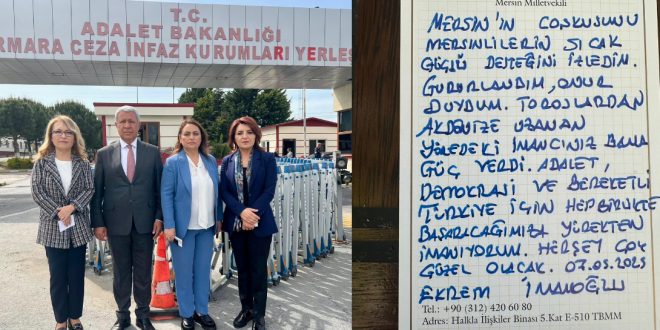 T.C.
ADALET BAKANLIĞI
ARMARA CEZA İNFAZ KURUMLARI YERLEŞ
Mersin Milletvekili
MERSİN'İN COŞKUSUNU
MERSİNLİLERİN SICAK
GÜÇLÜ DESTEĞİNİ İZLEDİM.
GURURLANDIM, ONUR
DUYDUM. TOROSLARDAN
AKDENİZE UZANAN
YÖREDEKİ İNANCINIZ BANA
GÜÇ VERDİ. ADALET,
DEMOKRASİ VE BEREKETLİ
TÜRKİYE İÇİN HEP BİRLİKTE
BAŞARACAĞIMIZA YÜREKTEN
İNANIYORUM. HERŞEY ÇOK
GÜZEL OLACAK. 07.05.2025
EKREM İMAMOĞLU
Tel.: +90 (312) 420 60 80
Adres: Halkla İlişkiler Binası 5.Kat E-510 TBMM